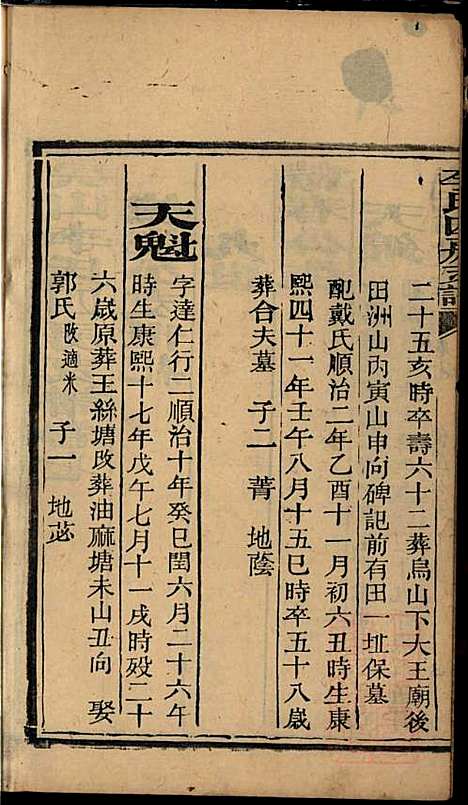 二十五亥時卒壽六十二葬烏山下大王廟後
田洲山丙寅山申向碑記前有田一坵保墓
配戴氏順治二年乙酉十一月初六丑時生康
熙四十一年壬午八月十五巳時卒五十八歲
葬合夫墓 子二 菁 地蔭
天魁 字達仁行二順治十年癸巳閏六月二十六午
時生康熙十七年戊午七月十一戌時殁二十
六歲原葬王絲塘改葬油麻塘未山丑向 娶
郭氏改適米 子一 地苾